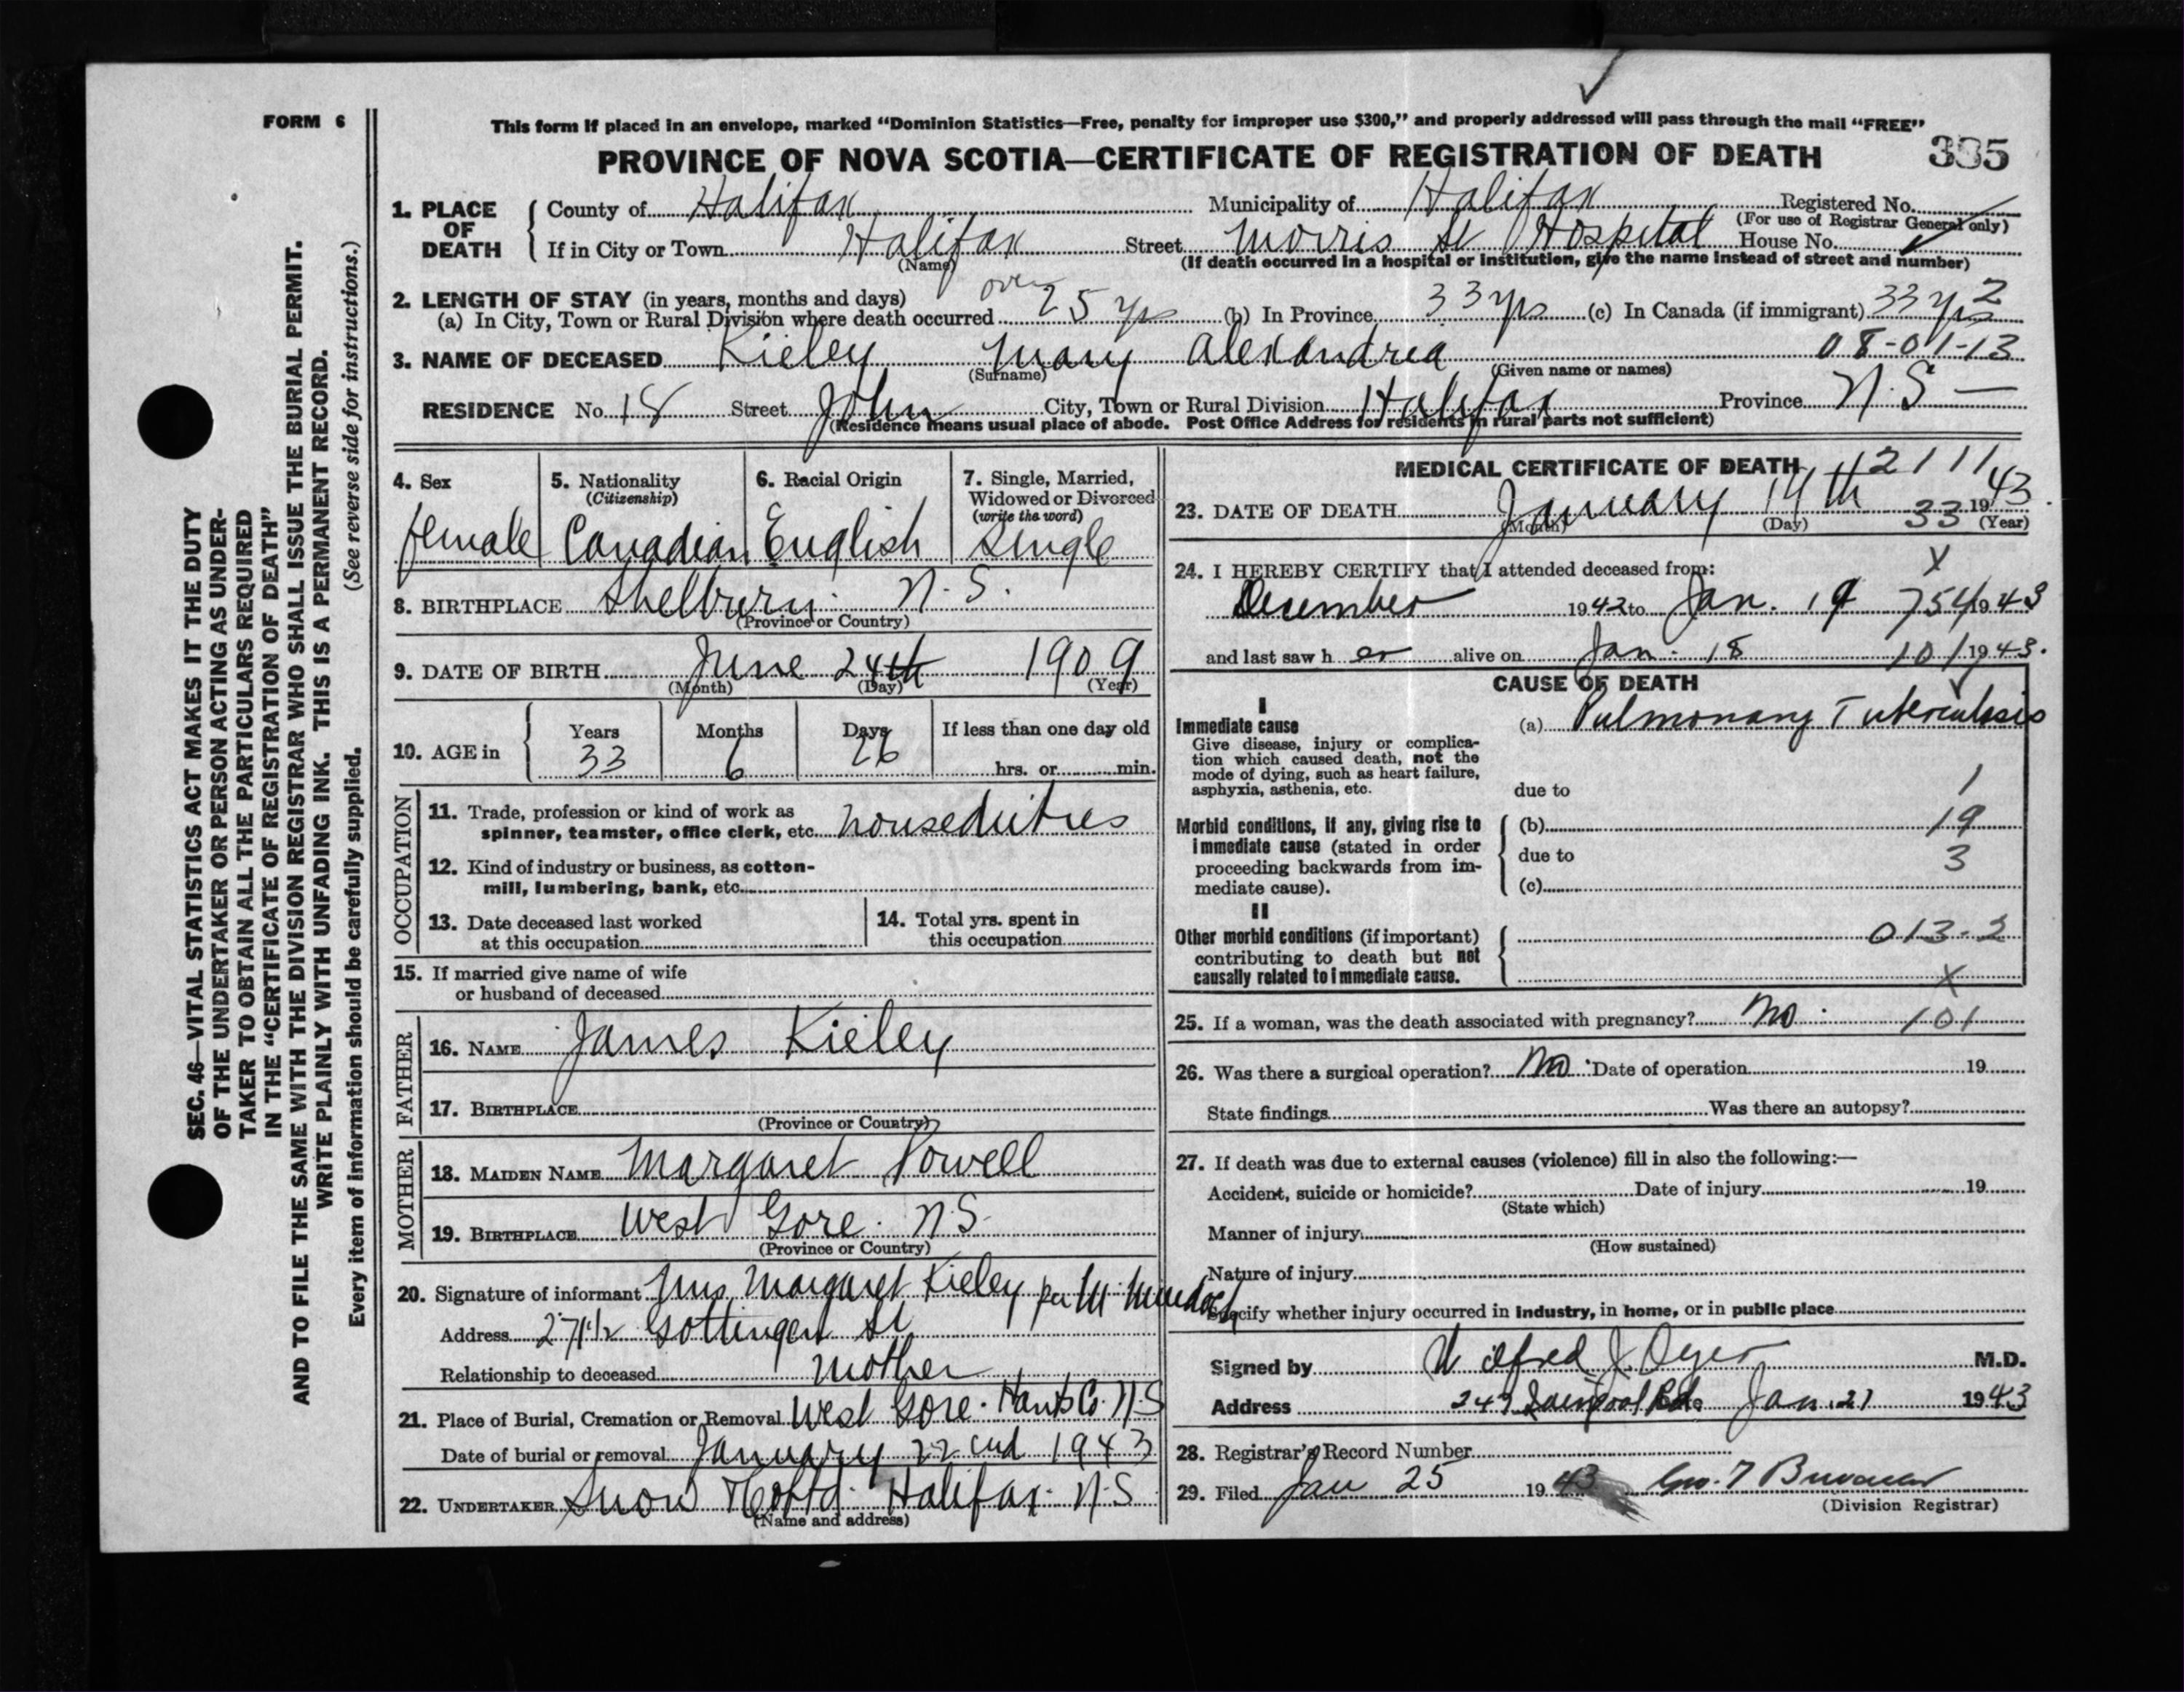 FORM 6
This form if placed in an envelope, marked “Dominion Statistics—Free, penalty for improper use $300,” and properly addressed will pass through the mail “FREE”
PROVINCE OF NOVA SCOTIA—CERTIFICATE OF REGISTRATION OF DEATH 385
1. PLACE OF DEATH
County of Halifax Municipality of Halifax Registered No.
(For use of Registrar General only)
If in City or Town Halifax Street Morris St Hospital House No.
(Name) (If death occurred in a hospital or institution, give the name instead of street and number)
2. LENGTH OF STAY (in years, months and days)
(a) In City, Town or Rural Division where death occurred over 25 yrs (b) In Province 33 yrs (c) In Canada (if immigrant) 33 yrs 2
3. NAME OF DECEASED Kieley Mary Alexandrea 08-01-13
(Surname) (Given name or names)
RESIDENCE No. 18 Street John City, Town or Rural Division Halifax Province N.S —
(Residence means usual place of abode. Post Office Address for residents in rural parts not sufficient)
4. Sex
female
5. Nationality
(Citizenship)
Canadian
6. Racial Origin
English
7. Single, Married, Widowed or Divorced
(write the word)
Single
8. BIRTHPLACE Shelburn N.S.
(Province or Country)
9. DATE OF BIRTH June 24th 1909
(Month) (Day) (Year)
10. AGE in
Years Months Days If less than one day old
33 6 26 hrs. or min.
OCCUPATION
11. Trade, profession or kind of work as
spinner, teamster, office clerk, etc. houseduties
12. Kind of industry or business, as cotton-
mill, lumbering, bank, etc.
13. Date deceased last worked
at this occupation
14. Total yrs. spent in
this occupation
15. If married give name of wife
or husband of deceased
FATHER
16. NAME James Kieley
17. BIRTHPLACE
(Province or Country)
MOTHER
18. MAIDEN NAME Margaret Powell
19. BIRTHPLACE West Gore. N.S.
(Province or Country)
20. Signature of informant Mrs Margaret Kieley per M. Murdoch
Address 271½ Gottingen St
Relationship to deceased mother
21. Place of Burial, Cremation or Removal West Gore. Hants Co. N.S
Date of burial or removal January 22nd 1943
22. UNDERTAKER Snow & Co Ltd. Halifax. N.S
(Name and address)
MEDICAL CERTIFICATE OF DEATH 12111
23. DATE OF DEATH January 19th 33 1943
(Month) (Day) (Year)
X
24. I HEREBY CERTIFY that I attended deceased from:
December 1942 to Jan. 19 754 1943
and last saw her alive on Jan. 18 101 1943.
CAUSE OF DEATH
I
Immediate cause
Give disease, injury or complica-
tion which caused death, not the
mode of dying, such as heart failure,
asphyxia, asthenia, etc.
(a) Pulmonary Tuberculosis
due to 1
Morbid conditions, if any, giving rise to
immediate cause (stated in order
proceeding backwards from im-
mediate cause).
(b) 19
due to 3
(c)
II
Other morbid conditions (if important)
contributing to death but not
causally related to immediate cause.
013-2
X
25. If a woman, was the death associated with pregnancy? No. 101
26. Was there a surgical operation? No. Date of operation 19
State findings Was there an autopsy?
27. If death was due to external causes (violence) fill in also the following:—
Accident, suicide or homicide? Date of injury 19
(State which)
Manner of injury
(How sustained)
Nature of injury
Specify whether injury occurred in industry, in home, or in public place
Signed by Wilfred J. Dyer M.D.
Address Jan. 21 1943
28. Registrar's Record Number
29. Filed Jan 25 1943
(Division Registrar)
SEC. 46—VITAL STATISTICS ACT MAKES IT THE DUTY
OF THE UNDERTAKER OR PERSON ACTING AS UNDER-
TAKER TO OBTAIN ALL THE PARTICULARS REQUIRED
IN THE “CERTIFICATE OF REGISTRATION OF DEATH”
AND TO FILE THE SAME WITH THE DIVISION REGISTRAR WHO SHALL ISSUE THE BURIAL PERMIT.
WRITE PLAINLY WITH UNFADING INK. THIS IS A PERMANENT RECORD.
(See reverse side for instructions.)
Every item of information should be carefully supplied.